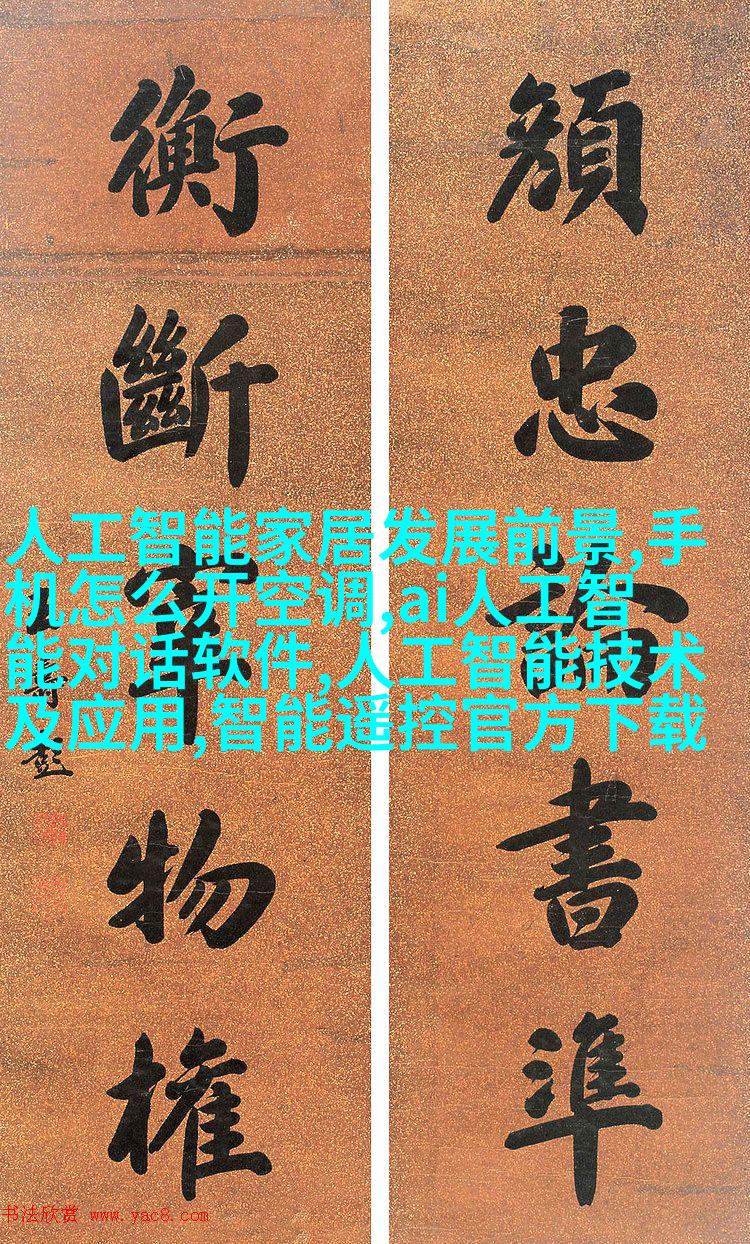 顏忠書準
衡斷物權
人工智能家居发展前景,手
机怎么开空调,ai人工智
能对话软件,人工智能技术
及应用,智能遥控官方下载
书法欣赏 www.yac8.com